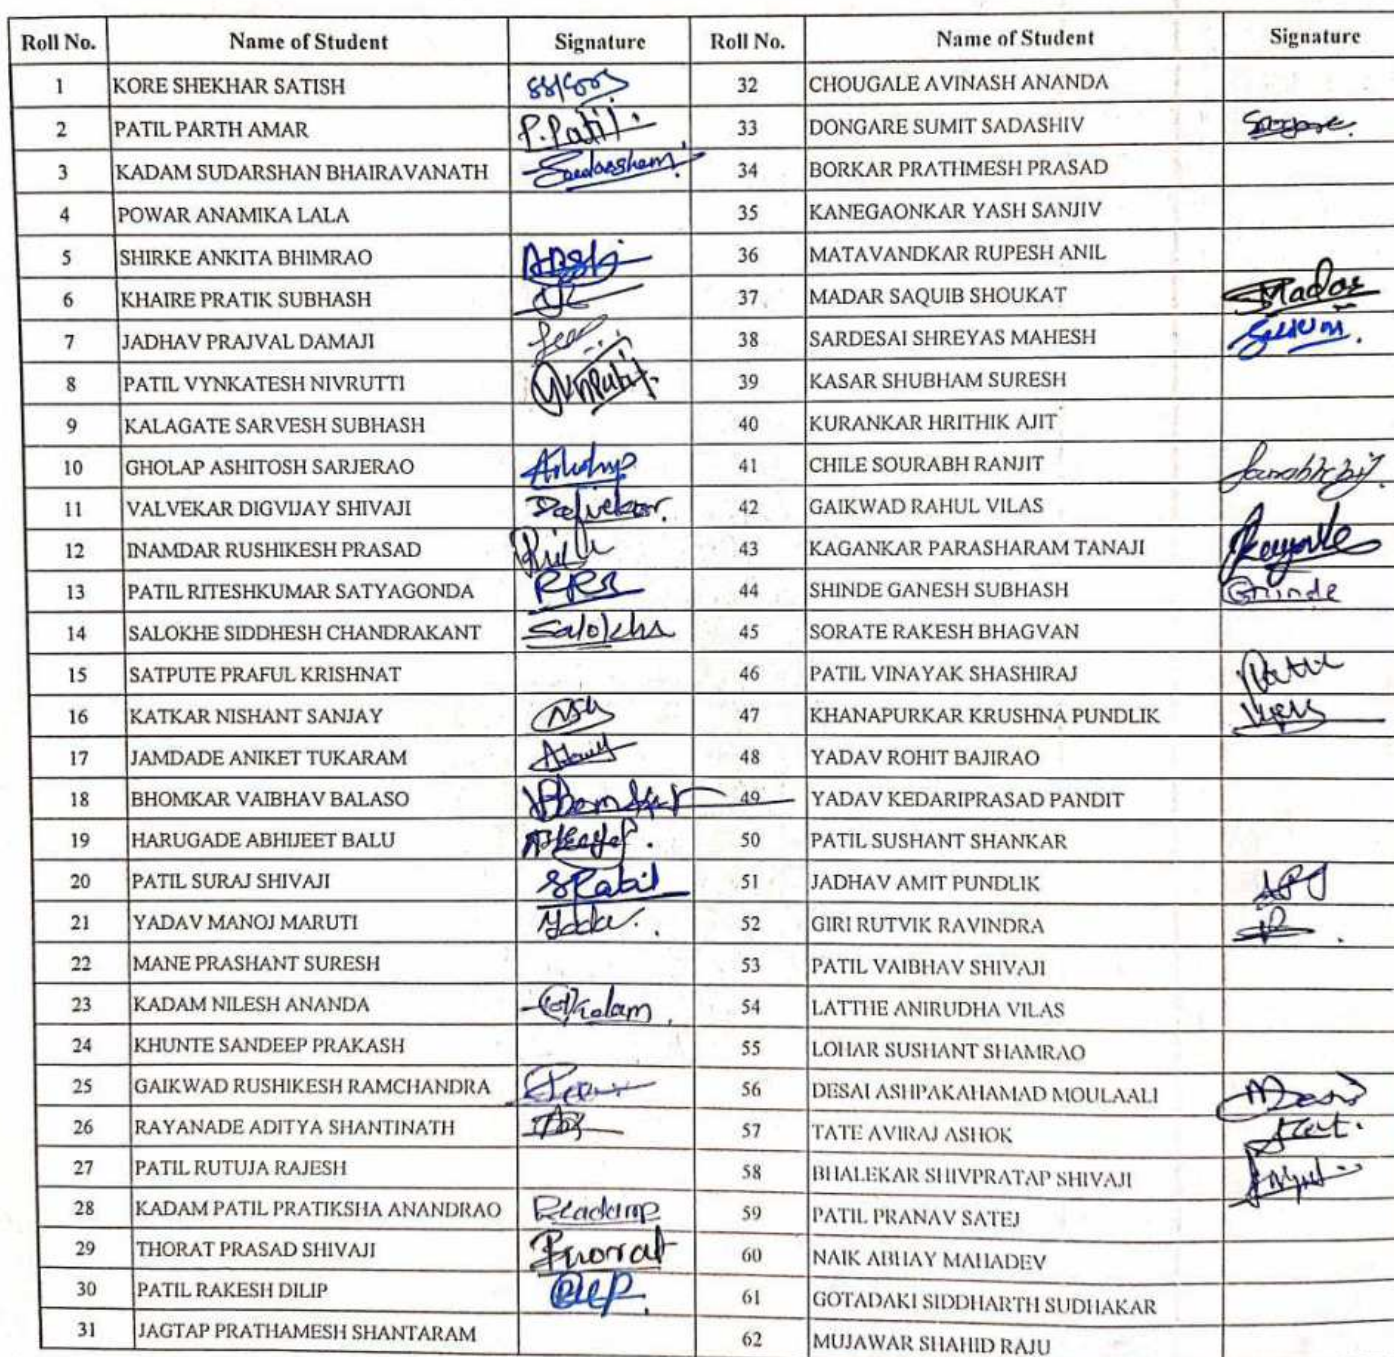 Roll No. Name of Student Signature Roll No. Name of Student Signature
1 KORE SHEKHAR SATISH 32 CHOUGALE AVINASH ANANDA
2 PATIL PARTH AMAR P.Patil. 33 DONGARE SUMIT SADASHIV
3 KADAM SUDARSHAN BHAIRAVANATH 34 BORKAR PRATHMESH PRASAD
4 POWAR ANAMIKA LALA 35 KANEGAONKAR YASH SANJIV
5 SHIRKE ANKITA BHIMRAO 36 MATAVANDKAR RUPESH ANIL
6 KHAIRE PRATIK SUBHASH 37 MADAR SAQUIB SHOUKAT Madar
7 JADHAV PRAJVAL DAMAJI 38 SARDESAI SHREYAS MAHESH
8 PATIL VYNKATESH NIVRUTTI 39 KASAR SHUBHAM SURESH
9 KALAGATE SARVESH SUBHASH 40 KURANKAR HRITHIK AJIT
10 GHOLAP ASHITOSH SARJERAO 41 CHILE SOURABH RANJIT
11 VALVEKAR DIGVIJAY SHIVAJI 42 GAIKWAD RAHUL VILAS
12 INAMDAR RUSHIKESH PRASAD 43 KAGANKAR PARASHARAM TANAJI
13 PATIL RITESHKUMAR SATYAGONDA 44 SHINDE GANESH SUBHASH
14 SALOKHE SIDDHESH CHANDRAKANT 45 SORATE RAKESH BHAGVAN
15 SATPUTE PRAFUL KRISHNAT 46 PATIL VINAYAK SHASHIRAJ
16 KATKAR NISHANT SANJAY 47 KHANAPURKAR KRUSHNA PUNDLIK
17 JAMDADE ANIKET TUKARAM 48 YADAV ROHIT BAJIRAO
18 BHOMKAR VAIBHAV BALASO 49 YADAV KEDARIPRASAD PANDIT
19 HARUGADE ABHIJEET BALU 50 PATIL SUSHANT SHANKAR
20 PATIL SURAJ SHIVAJI 51 JADHAV AMIT PUNDLIK
21 YADAV MANOJ MARUTI 52 GIRI RUTVIK RAVINDRA
22 MANE PRASHANT SURESH 53 PATIL VAIBHAV SHIVAJI
23 KADAM NILESH ANANDA 54 LATTHE ANIRUDHA VILAS
24 KHUNTE SANDEEP PRAKASH 55 LOHAR SUSHANT SHAMRAO
25 GAIKWAD RUSHIKESH RAMCHANDRA 56 DESAI ASHPAKAHAMAD MOULAALI
26 RAYANADE ADITYA SHANTINATH 57 TATE AVIRAJ ASHOK
27 PATIL RUTUJA RAJESH 58 BHALEKAR SHIVPRATAP SHIVAJI
28 KADAM PATIL PRATIKSHA ANANDRAO 59 PATIL PRANAV SATEJ
29 THORAT PRASAD SHIVAJI 60 NAIK ABHAY MAHADEV
30 PATIL RAKESH DILIP 61 GOTADAKI SIDDHARTH SUDHAKAR
31 JAGTAP PRATHAMESH SHANTARAM 62 MUJAWAR SHAHID RAJU